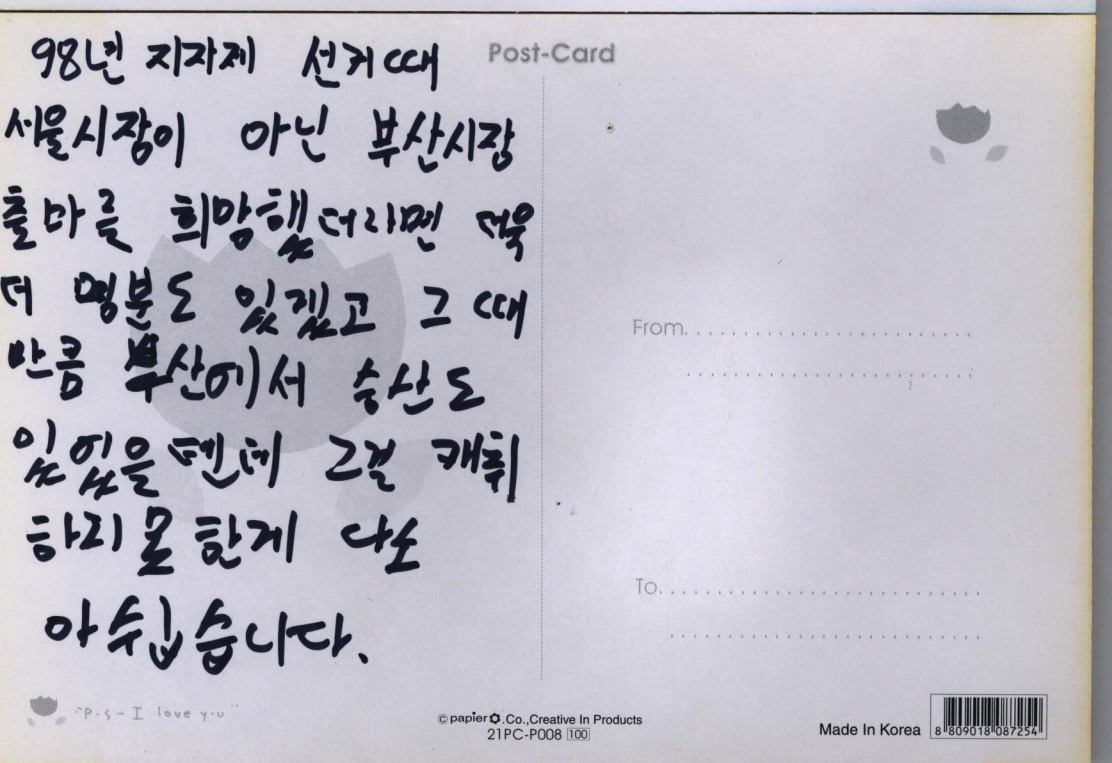 98년 지자제 선거때
서울시장이 아닌 부산시장
출마를 희망했더라면 더욱
더 명분도 있겠고 그 때
만큼 부산에서 승산도
있었을텐데 그걸 캐취
하리 못한게 다소
아쉽습니다.
Post-Card
From.
To.
"P.S-I love you"
© papier .Co.,Creative In Products
21PC-P008 100
Made In Korea
8 809018 087254